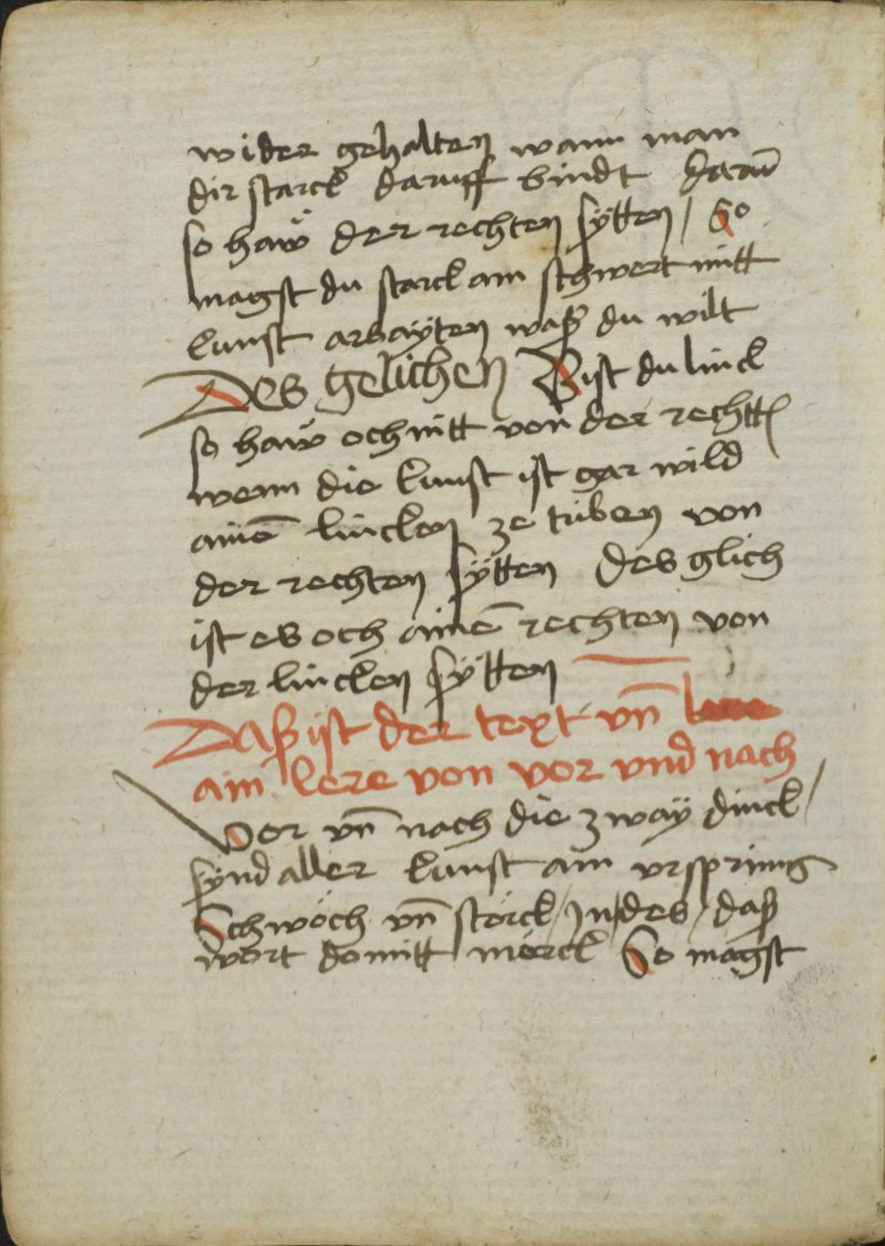 wider gehalten wann man
dir starck daruff bindt darū
so haw̎ der rechten sÿtten / So
magst du starck am schwert mitt
kunst arbaÿten waß du wilt
Des gelichen Bist du linck
so haw̎ och nitt von der rechtē
wenn die kunst ist gar wild
ainē lincken ze tüben von
der rechten sÿtten Des glich
ist es och ainē rechten von
der lincken sÿtten
Daß ist der text vn̄
ain lere von vor vnd nach
Vor vn̄ nach die zwaÿ dinck /
sÿnd aller kunst ain vrspring
Schwöch vn̄ störck / In des / daß
wort domitt mörck So magst